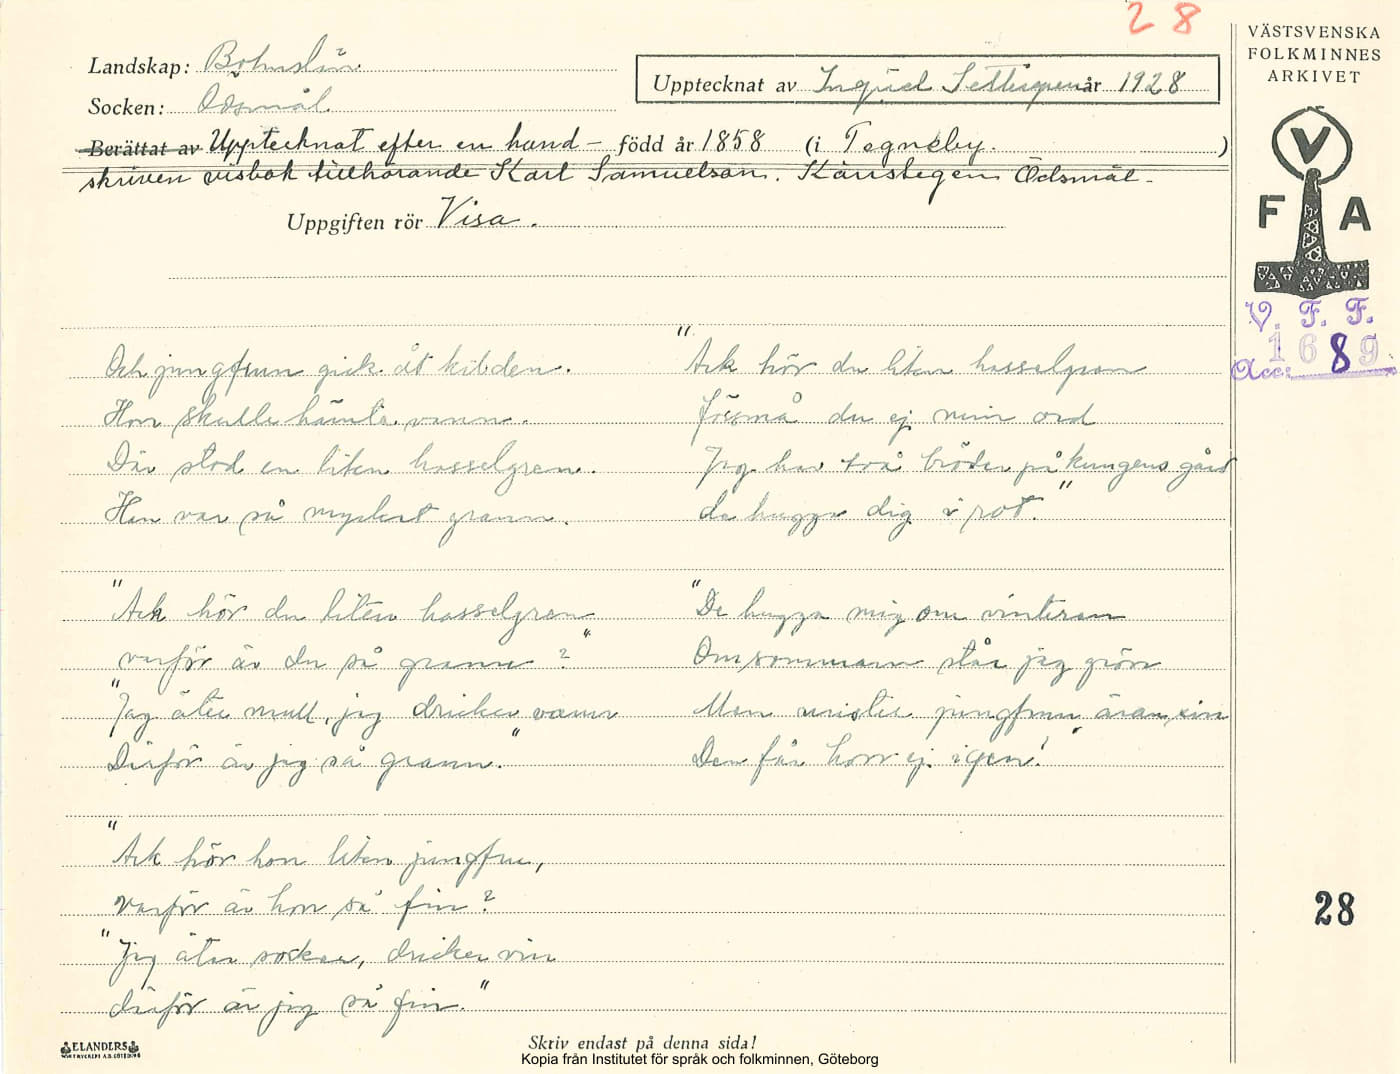 28
VÄSTSVENSKA
FOLKMINNES
ARKIVET
Landskap: Bohuslän
Upptecknat av Ingrid år 1928
Socken: Ödsmål
Berättat av Upptecknat efter en hand- född år 1858 (i Tegneby. )
skriven visbok tillhörande Karl Samuelson. Ödsmål-
Uppgiften rör Visa.
V
F A
V. F. F.
1689
Acc:
Och jungfrun gick åt källden.
Hon skulle hämta vann.
Där stod en liten hasselgren.
Han var så myckert grann.
"Ack hör du liten hasselgren
varför är du så grann?"
"Jag äter mull, jag dricker vann
Därför är jag så grann."
"Ack hör hon liten jungfru,
Varför är hon så fin?
"Jag äter socker, dricker vin
därför är jag så fin."
"Ack hör du liten hasselgren
försmå du ej min ord
Jag har två bröder på kungens gård
de hugga dig i rot."
"De hugga mig om vintern
Om sommarn står jag grön
Men mister jungfrun äran sin
Den får hon ej igen!"
28
ELANDERS
Skriv endast på denna sida!
Kopia från Institutet för språk och folkminnen, Göteborg